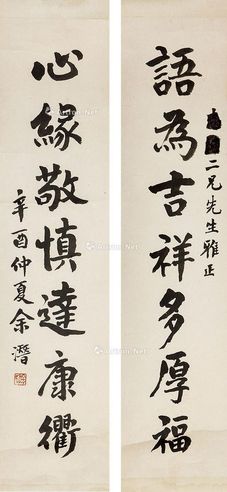 語為吉祥多厚福
二兄先生雅正
心緣敬慎達康衢
辛酉仲夏余潛